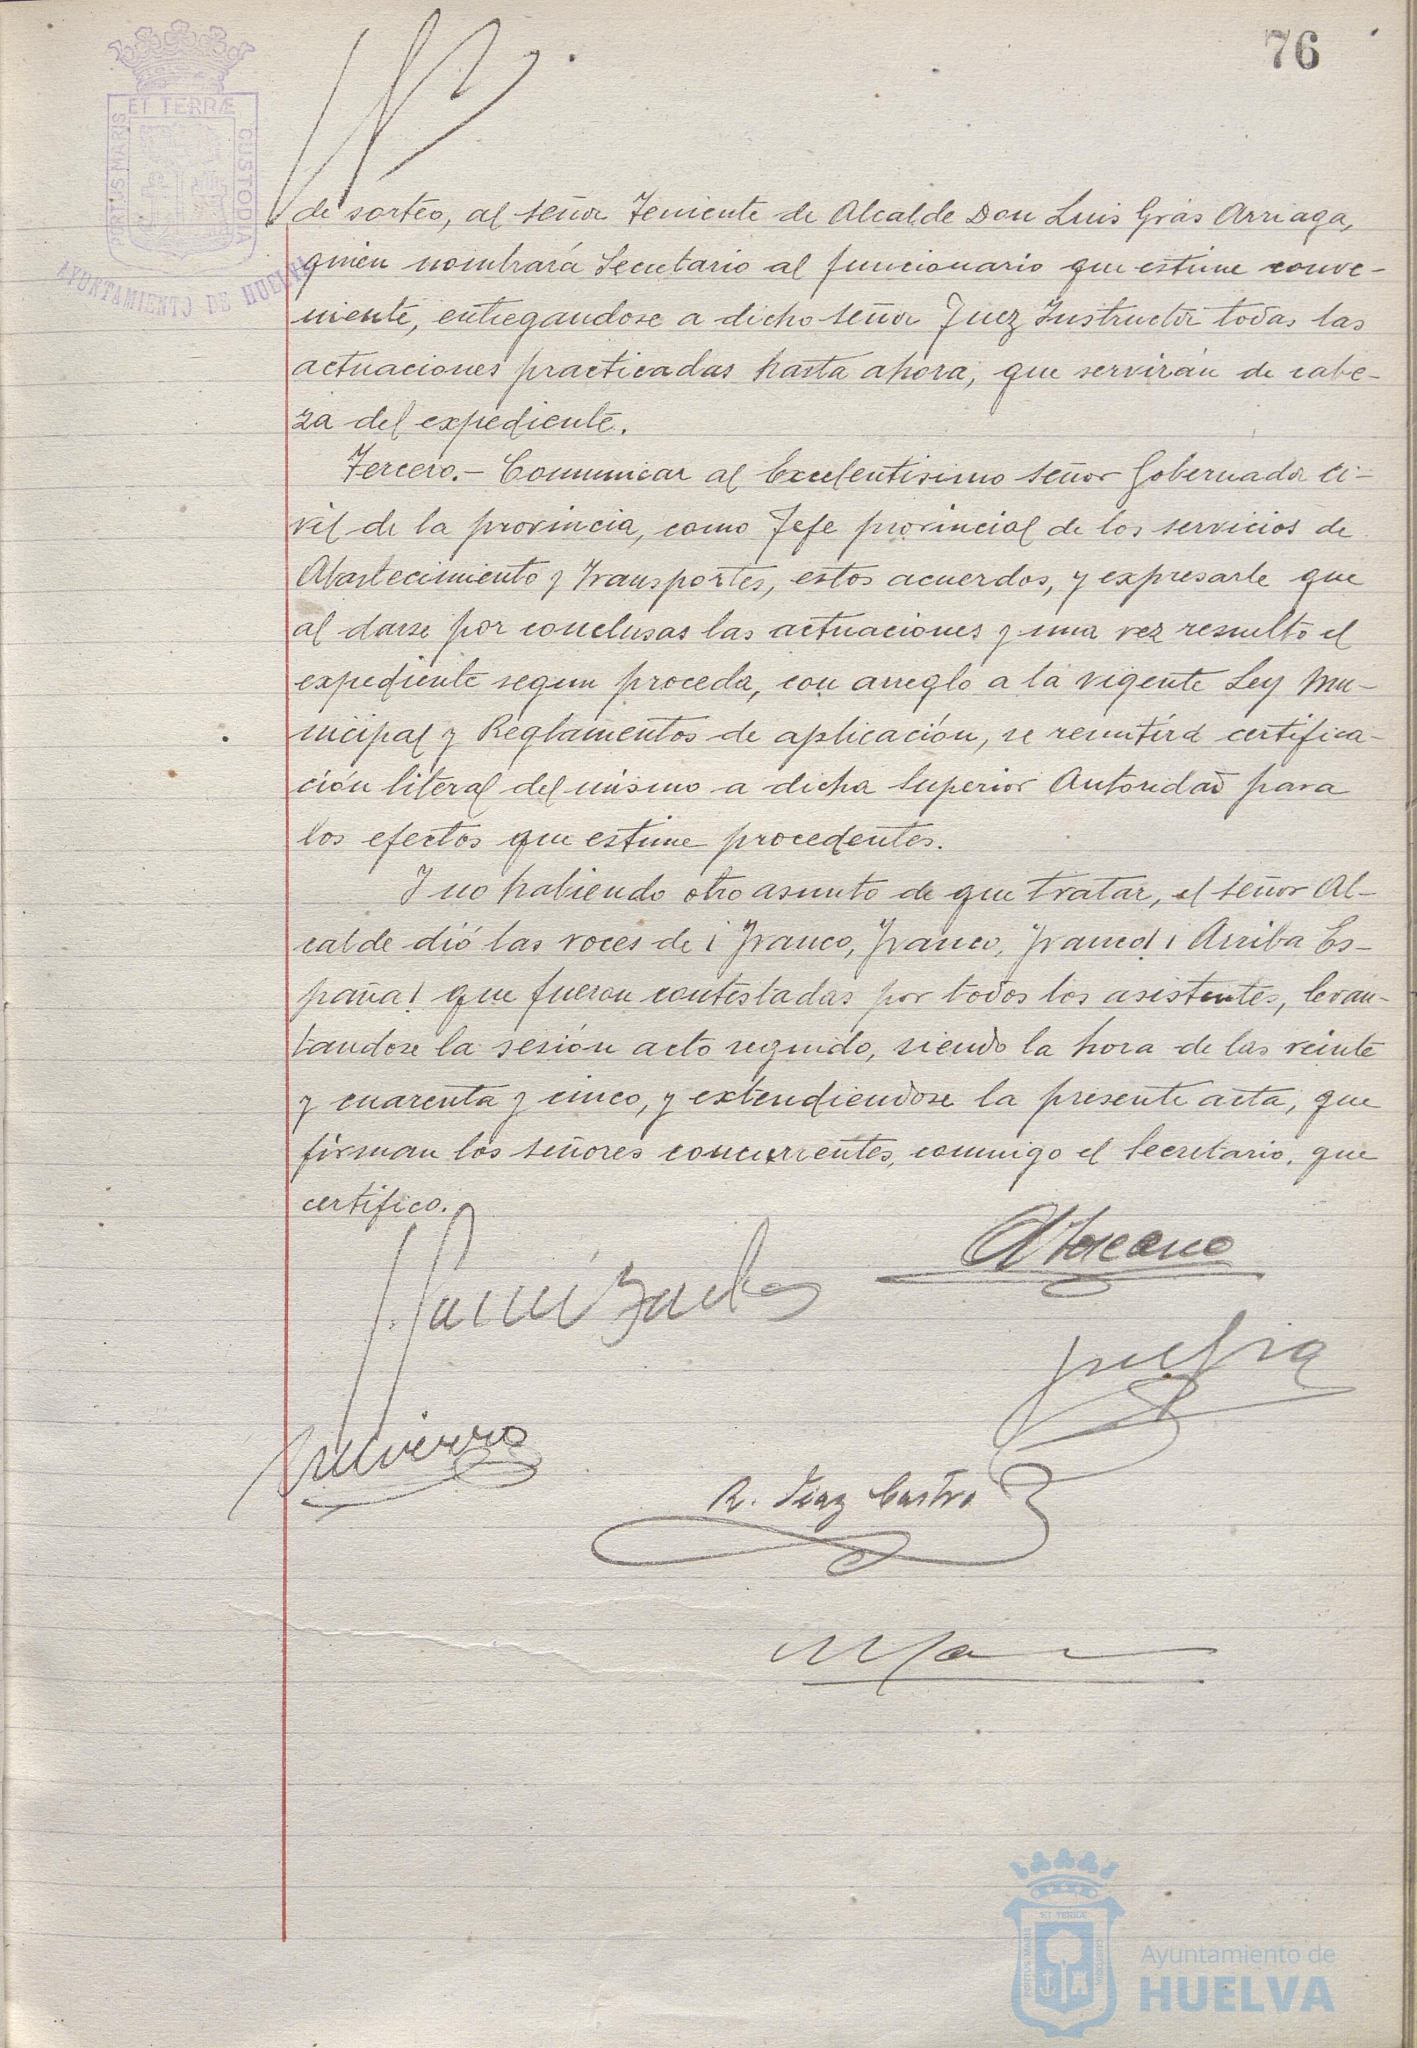 76
ET TERRÆ
PORTUS MARIS
CUSTODIA
AYUNTAMIENTO DE HUELVA
de sorteo, al señor Teniente de Alcalde Don Luis Grás Arriaga,
quien nombrará Secretario al funcionario que estime conve-
niente, entregandose a dicho señor Juez Instructor todas las
actuaciones practicadas hasta ahora, que servirán de cabe-
za del expediente.
Tercero.- Comunicar al Excelentisimo señor Gobernador ci-
vil de la provincia, como Jefe provincial de los servicios de
Abastecimiento y Transportes, estos acuerdos, y expresarle que
al darse por conclusas las actuaciones y una vez resuelto el
expediente segun proceda, con arreglo a la vigente Ley Mu-
nicipal y Reglamentos de aplicación, se remitirá certifica-
ción literal del mismo a dicha Superior Autoridad para
los efectos que estime procedentes.
Y no habiendo otro asunto de que tratar, el señor Al-
calde dió las voces de ¡Franco, Franco, Franco! ¡Arriba Es-
paña! que fueron contestadas por todos los asistentes, levan-
tandose la sesión acto seguido, siendo la hora de las veinte
y cuarenta y cinco, y extendiendose la presente acta, que
firman los señores concurrentes, conmigo el Secretario, que
certifico.
R. Diaz Castro
ET TERRÆ
PORTUS MARIS
CUSTODIA
Ayuntamiento de
HUELVA